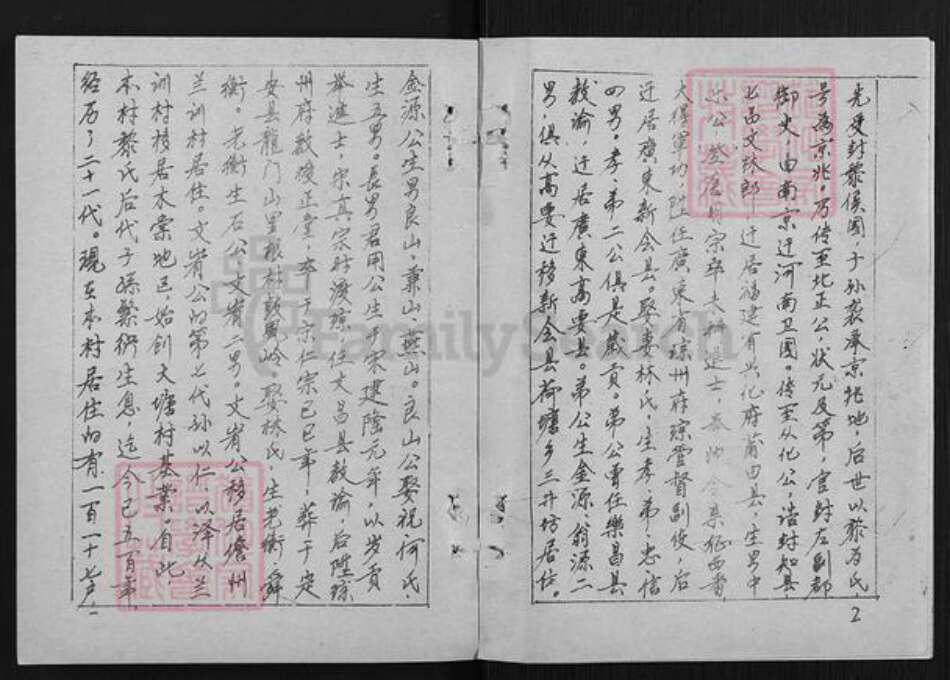 先受封黎侯國，子孙袭承京兆地，后世以黎为氏，
号为京兆。乃传至北正公，状元及第，官封左副都
御史，由南京迁河南卫國。传至从化公，诰封知县
七品文林郎，迁居福建省兴化府莆田县，生男中
乐公，登唐宗辛未科进士，令集征西番
大得軍功，陞任廣東省琼州府琼管督副使，后
迁居廣東新会县。娶妻林氏，生孝、弟、忠、信
四男。孝、弟二公俱是歲贡。弟公曾任樂昌县
教谕，迁居廣東高要县。弟公生金源、翁源二
男，俱从高要迁移新会县荷塘乡三丹坊居住。
2
金源公生男良山，兼山，燕山。良山公娶祝、何氏
生五男。長男君用公生于宋建隆元年，以岁贡
举進士，宋真宗时渡琼，任文昌县教谕，后陞琼
州府教授正堂，卒于宋仁宗己巳年，葬于定
安县龍门山里根村鼓凤岭。娶林氏，生老衡、舜
衡。老衡生石公、文肖二男。文肖公移居儋州
兰训村居住。文肖公的第七代孙以仁、以泽从兰
训村移居本棠地区，始创大塘村基業，自此，
本村黎氏后代子孫繁衍生息，迄今已五百年，
经历了二十一代。現在本村居住的有一百一十七户，
FamilySearch